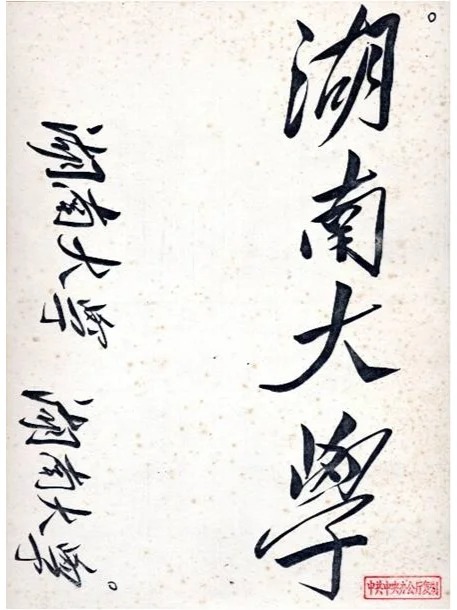 湖南大學
湖南大學
湖南大學
中共中央办公厅复制